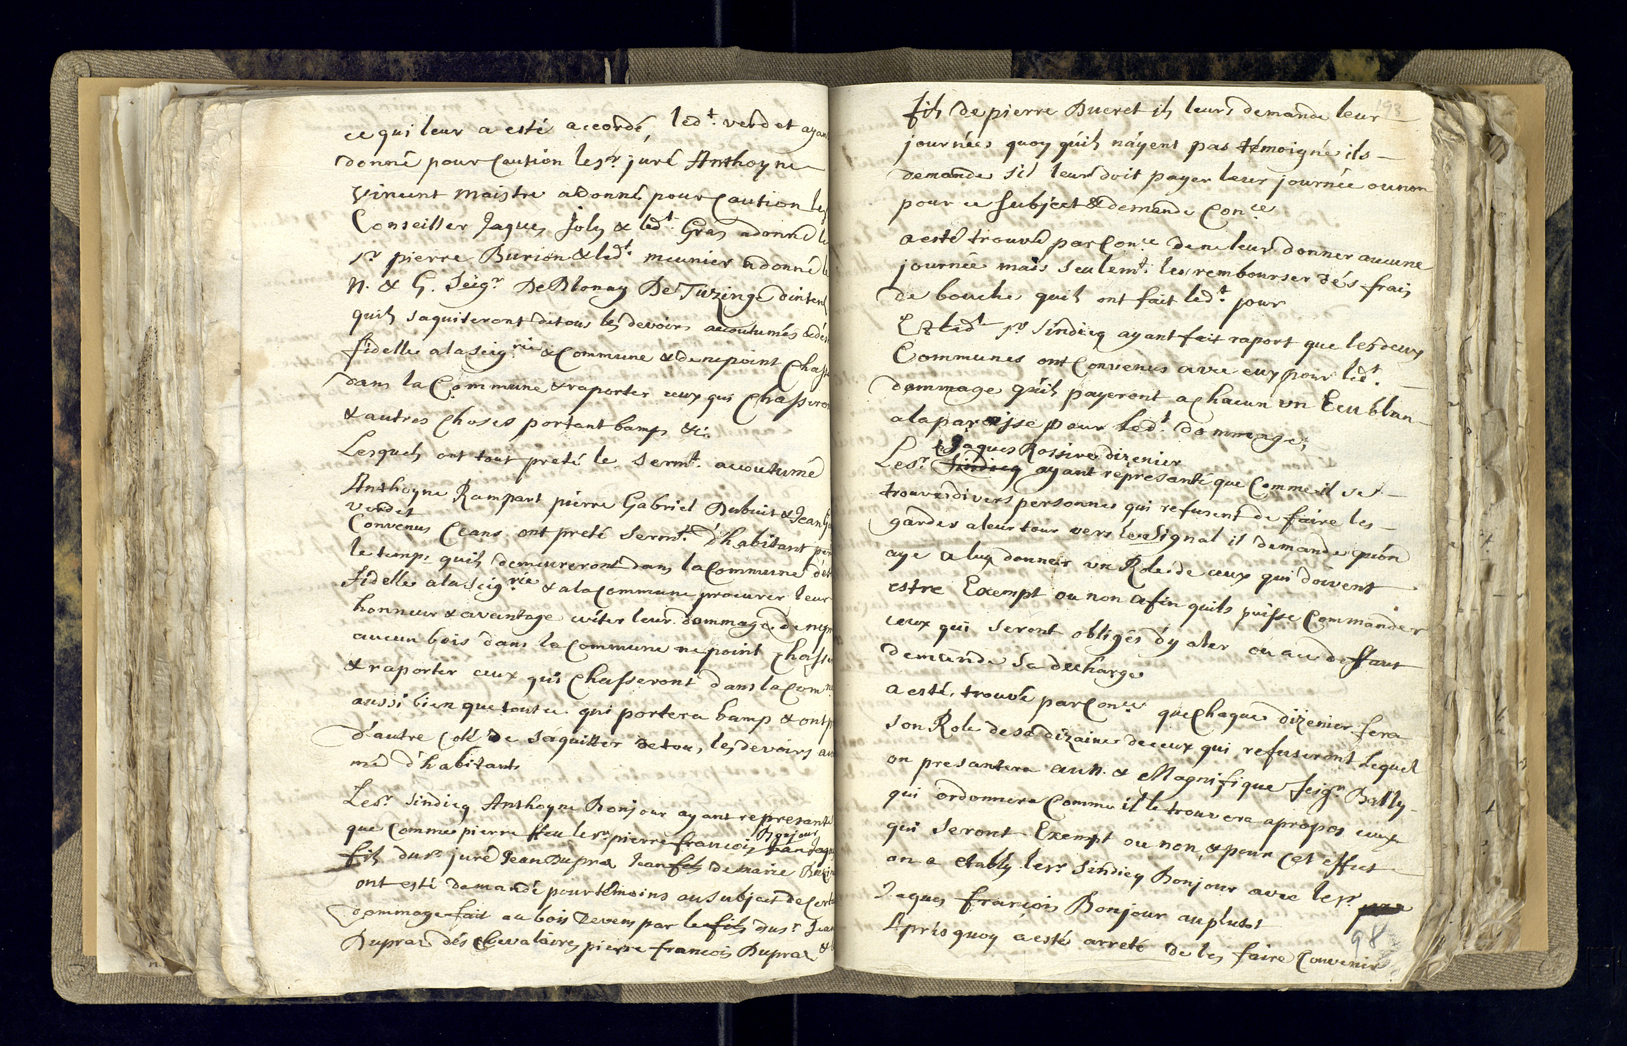 ce qui leur a esté accordé, led.t verdet ayan
donné pour Caution le sr. juré Anthoyne
Vincent maistre a donné pour Caution le
Conseiller Jaques Joly & led.t Gras a donné le
sr. pierre Burion & led.t meunier a donné le
N. & G. Seigr. De Blonay De Tuzinge d'inten
quils saquiteront de tous les devoirs accoutumés
fidelle a la Seig.rie & Commune & de ne point Chass
dans la Commune & raporter ceux qui Chasseron
& autres Choses portant bamps &c.
Lesquels ont tout preté le Serm.t accoutumé
Anthoyne Rampart pierre Gabriel Dubuit & Jean
verdet
Convenus Ceans, ont preté Serm.t d'habitant pen
le temps quils demeureront dans la Commune d'es
fidelle a la Seig.rie & a la Commune procurer leur
honneur & aventage éviter leur dommage, de
aucun bois dans la Commune ne point Chasse
& raporter ceux qui Chasseront dans la Com
aussi bien que tout ce qui portera bamp & ont
d'autre Coté de saquitter de tous les devoirs
mé d'habitants
Le sr. Sindicq Anthoyne Bonjour ayant represanté
que Comme pierre ffeu le sr. pierre françois Jean Jaques
Bonjour
fils du sr. juré Jean Dupraz Jean fils de marie
ont esté demandé pour témoins au subject de Cert
dommage fait au bois Devens par le fils du sr. Jean
Dupraz dés Chevalaires, pierre françois Dupraz &
193
fils de pierre Ducret ils leurs demande leur
journées quoy quils n'ayent pas témoigné ils
demande s'il leurs doit payer leur journée ou non
pour ce Subject & demande Con.ce
a esté trouvé par Con.ce de ne leurs donner aucune
journée mais Seulem.t les rembourser dés frais
de bouche quils ont fait led.t jour
Et led.t sr. Sindicq ayant fait raport que les deux
Communes ont Convenus avec eux pour led.t
dommage quils payeront a chacun un Ecu blan
a la paroisse pour led.t dommage,
Jaques Rossire dizenier
Le sr. Sindicq ayant represanté que Comme il se
trouve divers personnes qui refusent de faire les
gardes a leur tour vers le Signal il demande quon
aye a luy donner un Role de ceux qui doivent
estre Exempt ou non afin quils puisse Commander
ceux qui seront obligés d'y aler ou au deffaut
demande sa decharge
a esté trouvé par Con.ce que Chaque dizenier fera
son Role de sa dizaine de ceux qui refuseront Lequel
on presantera au N. & Magnifique Seigr. Bally
qui ordonnera Comme il le trouvera apropos ceux
qui Seront Exempt ou non, & pour Cet effect
on a etably le sr. Sindicq Bonjour avec le sr.
Jaques françois Bonjour au plutot
Aprés quoy a esté arreté de les faire Convenir
98